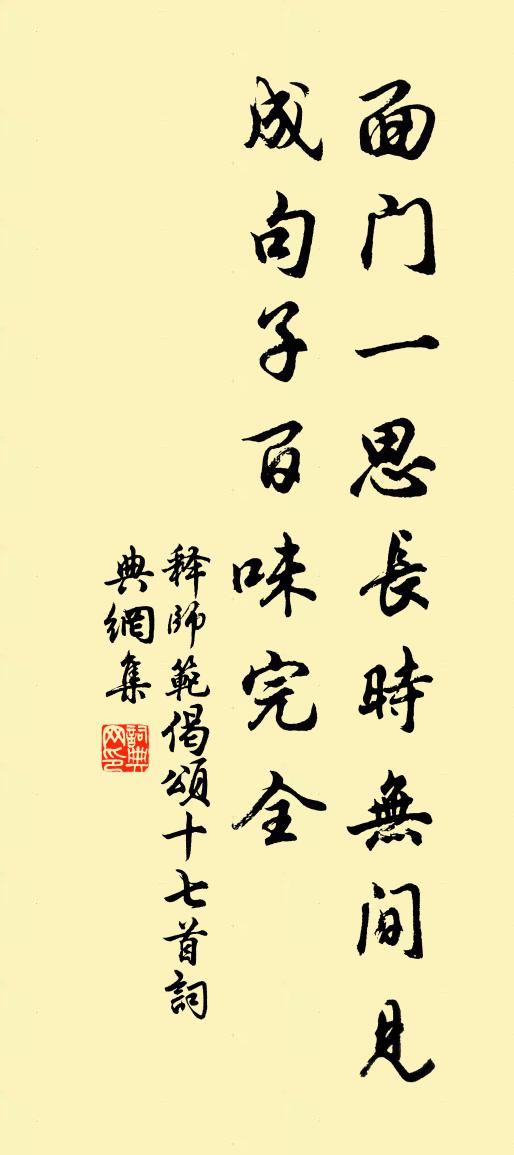 面门一思長時無间见
成句子百味完全
释師範偈頌十七首詞
典網集
詞典
网印